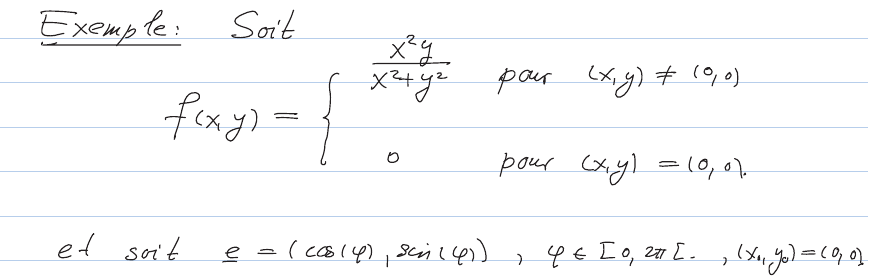 Exemple: Soit
x²y
x²+y² pour (x,y) ≠ (0,0)
f(x,y) = {
0 pour (x,y) = (0,0).
et soit e = (cos(φ), sin(φ)), φ ∈ [0, 2π[. , (x₀,y₀)=(0,0)